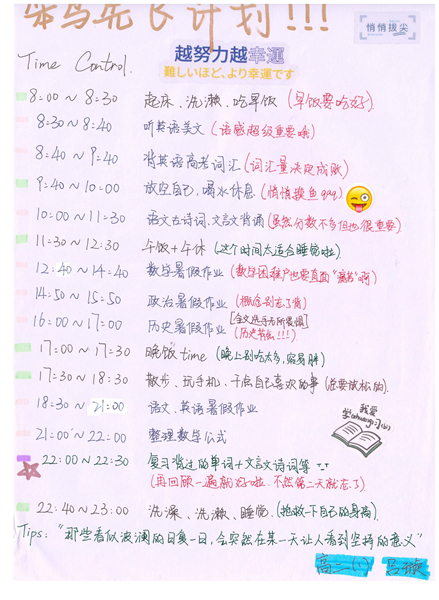 笨鸟先飞计划!!!
悄悄拔尖
越努力越幸運
難しいほど、より幸運です
Time Control.
8:00~8:30 起床、洗漱、吃早饭 (早饭要吃好)
8:30~8:40 听英语美文 (语感超级重要哦)
8:40~9:40 背英语高考词汇 (词汇量决定成败)
9:40~10:00 放空自己,喝水休息 (悄悄摸鱼 qqq)
10:00~11:30 语文古诗词、文言文背诵 (虽然分数不多但也很重要)
11:30~12:30 午饭+午休 (这个时间太适合睡觉啦)
12:40~14:40 数学暑假作业 (数学困难户也要直面"痛苦"啊)
14:50~15:50 政治暑假作业 (概念别忘了背)
16:00~17:00 历史暑假作业
(历史书啊!!!)
17:00~17:30 晚饭 time (晚上别吃太多,容易胖)
17:30~18:30 散步、玩手机、干点自己喜欢的事 (总要放松的)
18:30~21:00 语文、英语暑假作业
我爱
学(chuang)习(xi)
21:00~22:00 整理数学公式
22:00~22:30 复习背过的单词+文言文诗词等
(再回顾一遍就好啦,不然第二天就忘了)
22:40~23:00 洗澡、洗漱、睡觉. (拯救一下自己的身高)
Tips:"那些看似波澜的日复一日,会突然在某一天让人看到坚持的意义"
高二(1) 吕璇